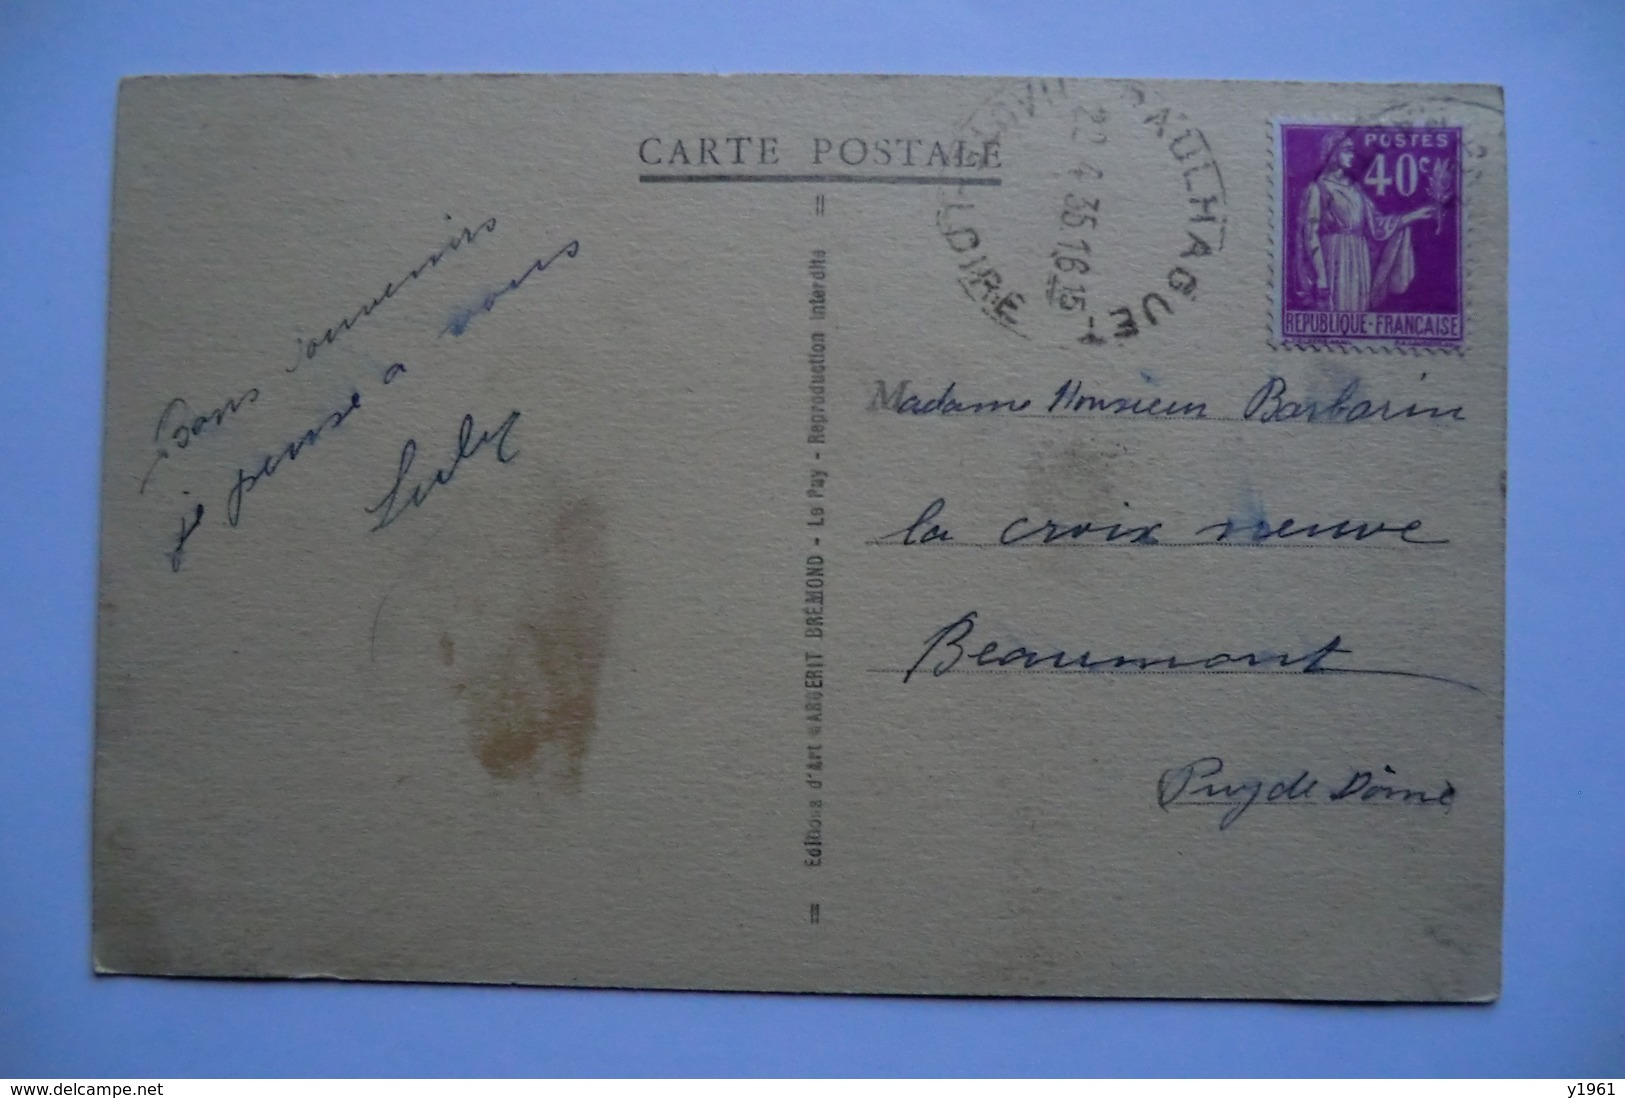 CARTE POSTALE
Bons souvenirs
je pense à vous
Luly
Editions d'Art MARGERIT BREMOND - Le Puy - Reproduction interdite
PAULHAGUET
22 4 35 16 15
LOIRE
POSTES
40c
REPUBLIQUE·FRANÇAISE
Madame Monsieur Barbarin
la croix neuve
Beaumont
Puy de Dôme
www.delcampe.net
y1961